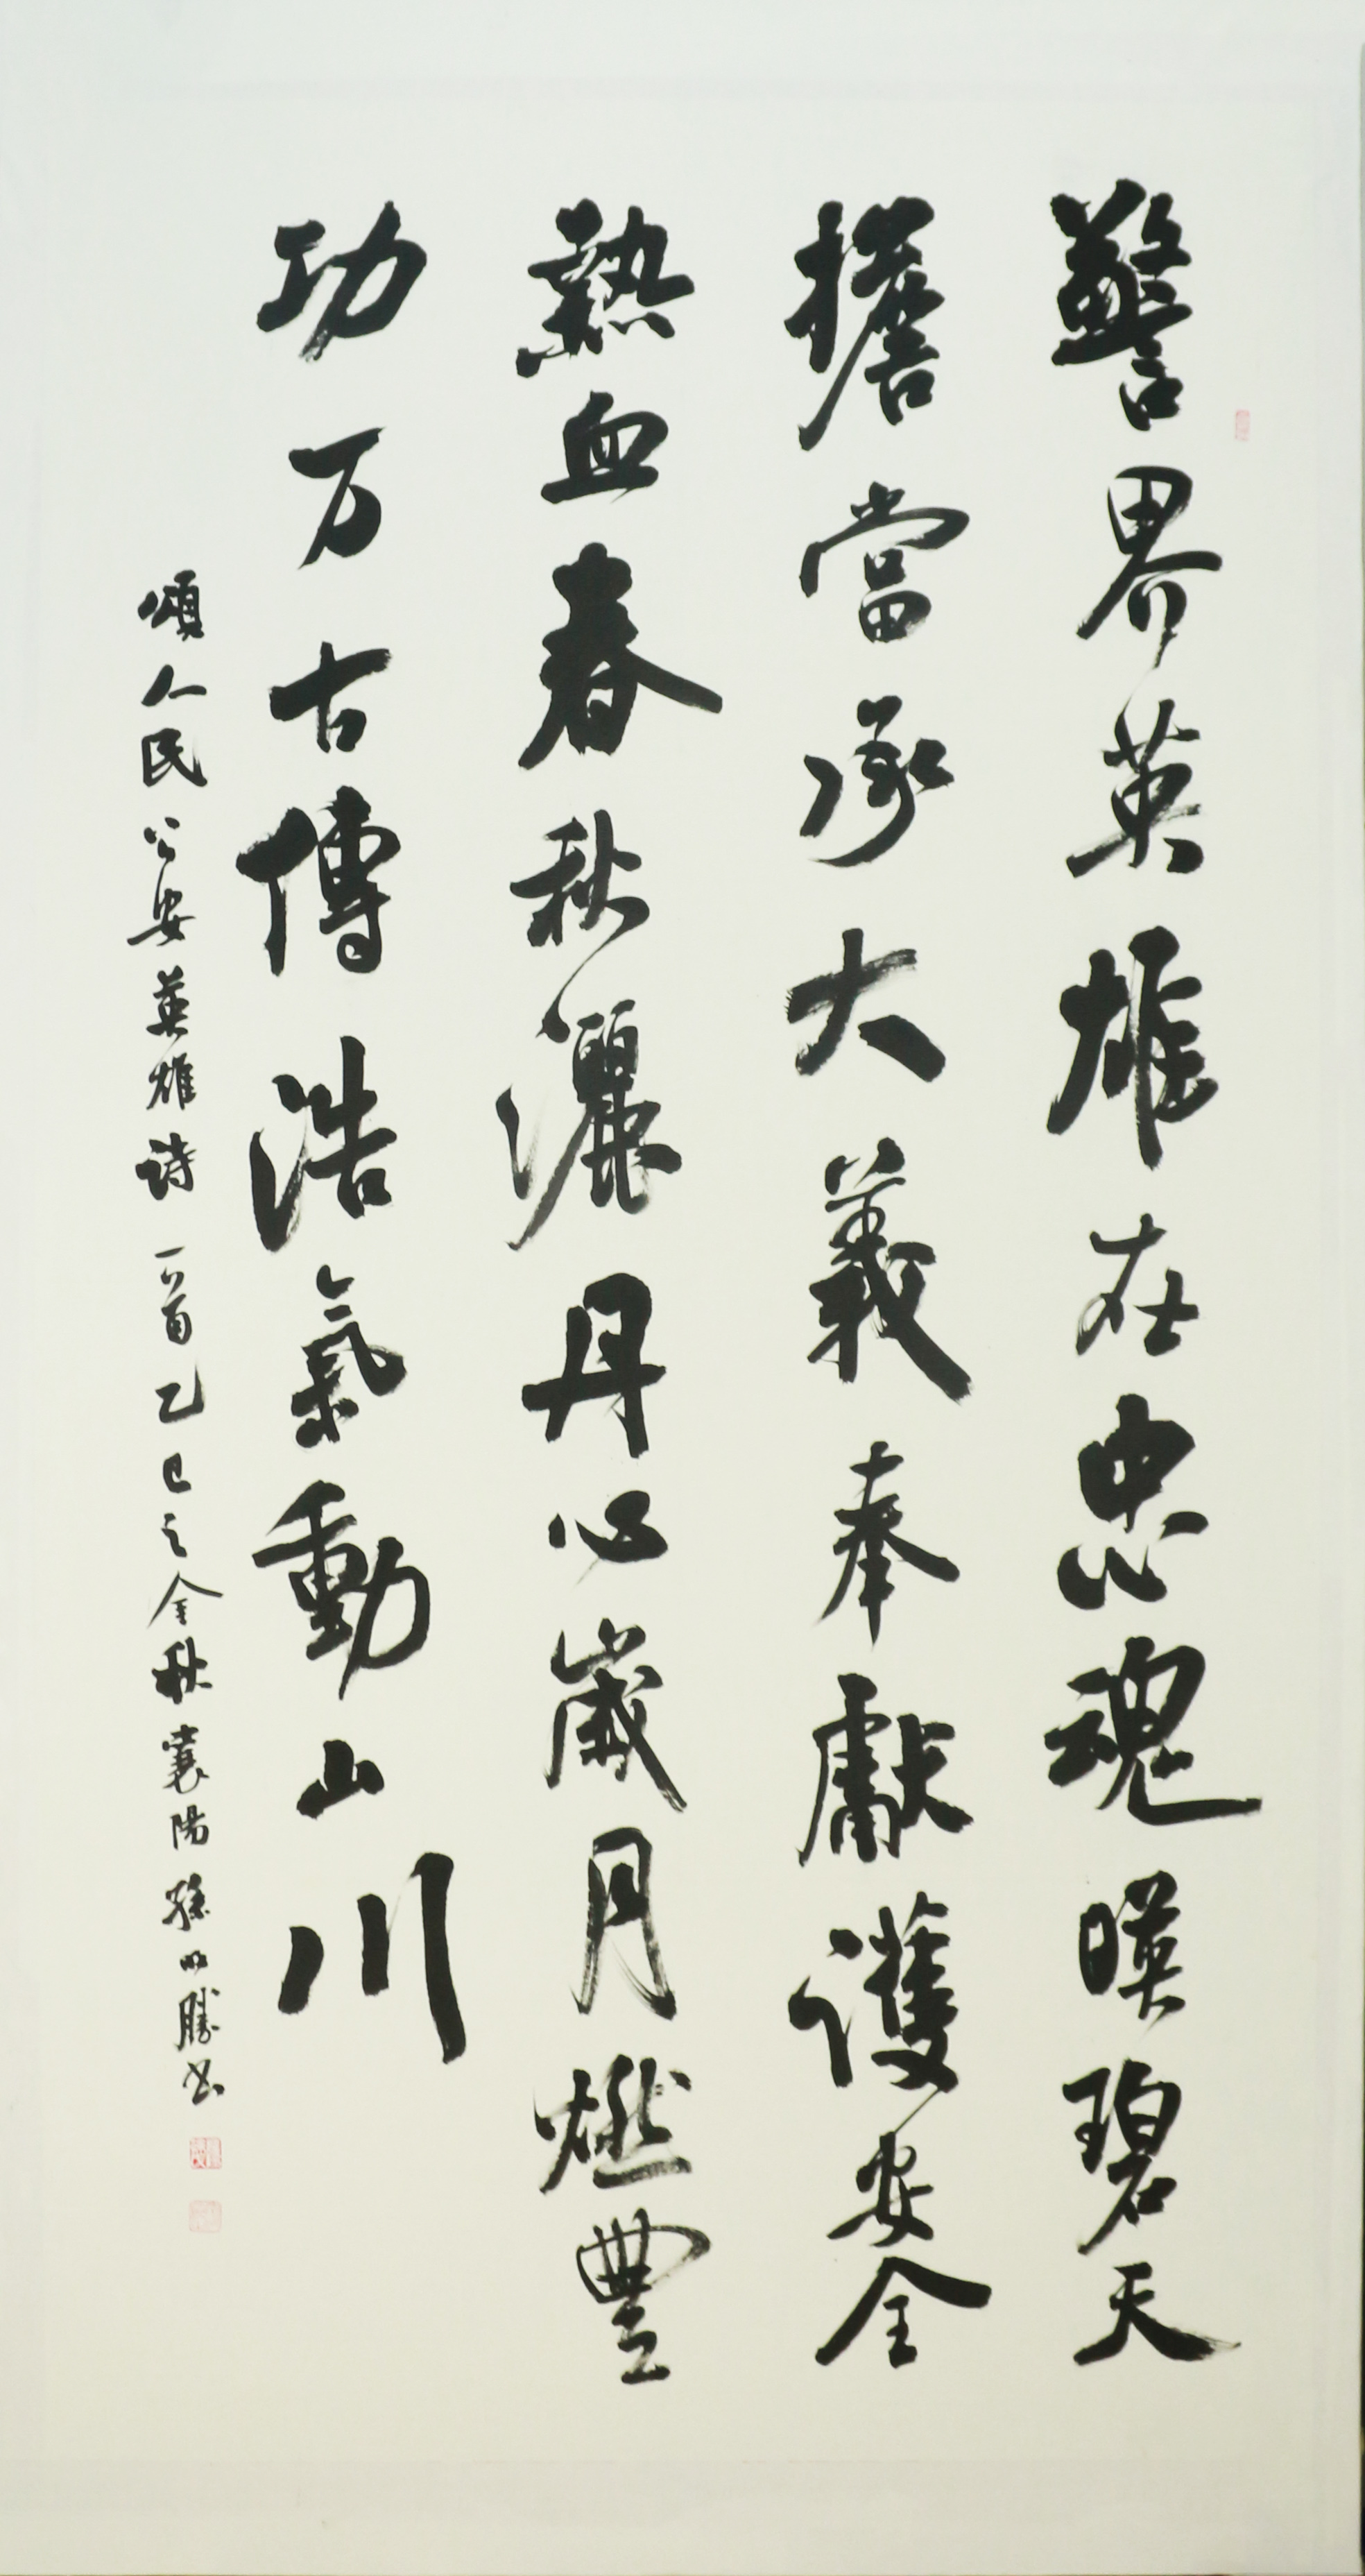 警界英雄在忠魂暎碧天
擔當承大義奉獻護安全
熱血春秋灑丹心歲月燃豐
功万古傳浩氣動山川
頌人民公安英雄詩一首乙巳之金秋襄陽孫明勝書